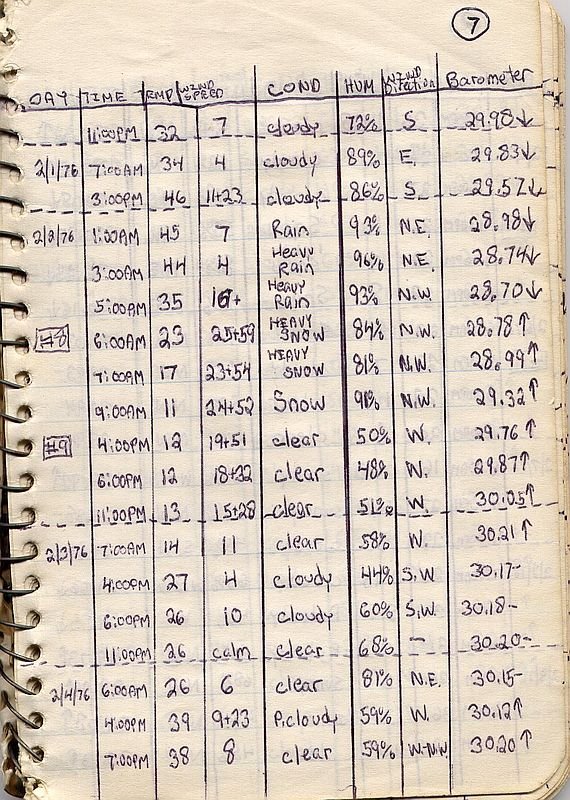 7
DAY TIME TEMP WIND SPEED COND HUM WIND DIRECTION Barometer
11:00PM 32 7 cloudy 72% S 29.98↓
2/1/76 7:00AM 34 4 cloudy 89% E. 29.83↓
3:00PM 46 11+23 cloudy 86% S 29.57↓
2/2/76 1:00AM 45 7 Rain 93% N.E. 28.98↓
3:00AM 44 4 Heavy Rain 96% N.E. 28.74↓
5:00AM 35 16+ Heavy Rain 93% N.W. 28.70↓
#8 6:00AM 23 25+59 HEAVY SNOW 84% N.W. 28.78↑
7:00AM 17 23+54 HEAVY SNOW 81% N.W. 28.99↑
9:00AM 11 24+52 Snow 91% N.W. 29.32↑
#9 4:00PM 12 19+51 clear 50% W. 29.76↑
6:00PM 12 18+32 clear 48% W. 29.87↑
11:00PM 13 15+28 clear 51% W. 30.05↑
2/3/76 7:00AM 14 11 clear 58% W. 30.21↑
4:00PM 27 4 cloudy 44% S.W. 30.17-
6:00PM 26 10 cloudy 60% S.W. 30.18-
11:00PM 26 calm clear 68% - 30.20-
2/4/76 6:00AM 26 6 clear 81% N.E. 30.15-
4:00PM 39 9+23 P.cloudy 59% W. 30.12↑
7:00PM 38 8 clear 59% W-N.W. 30.20↑